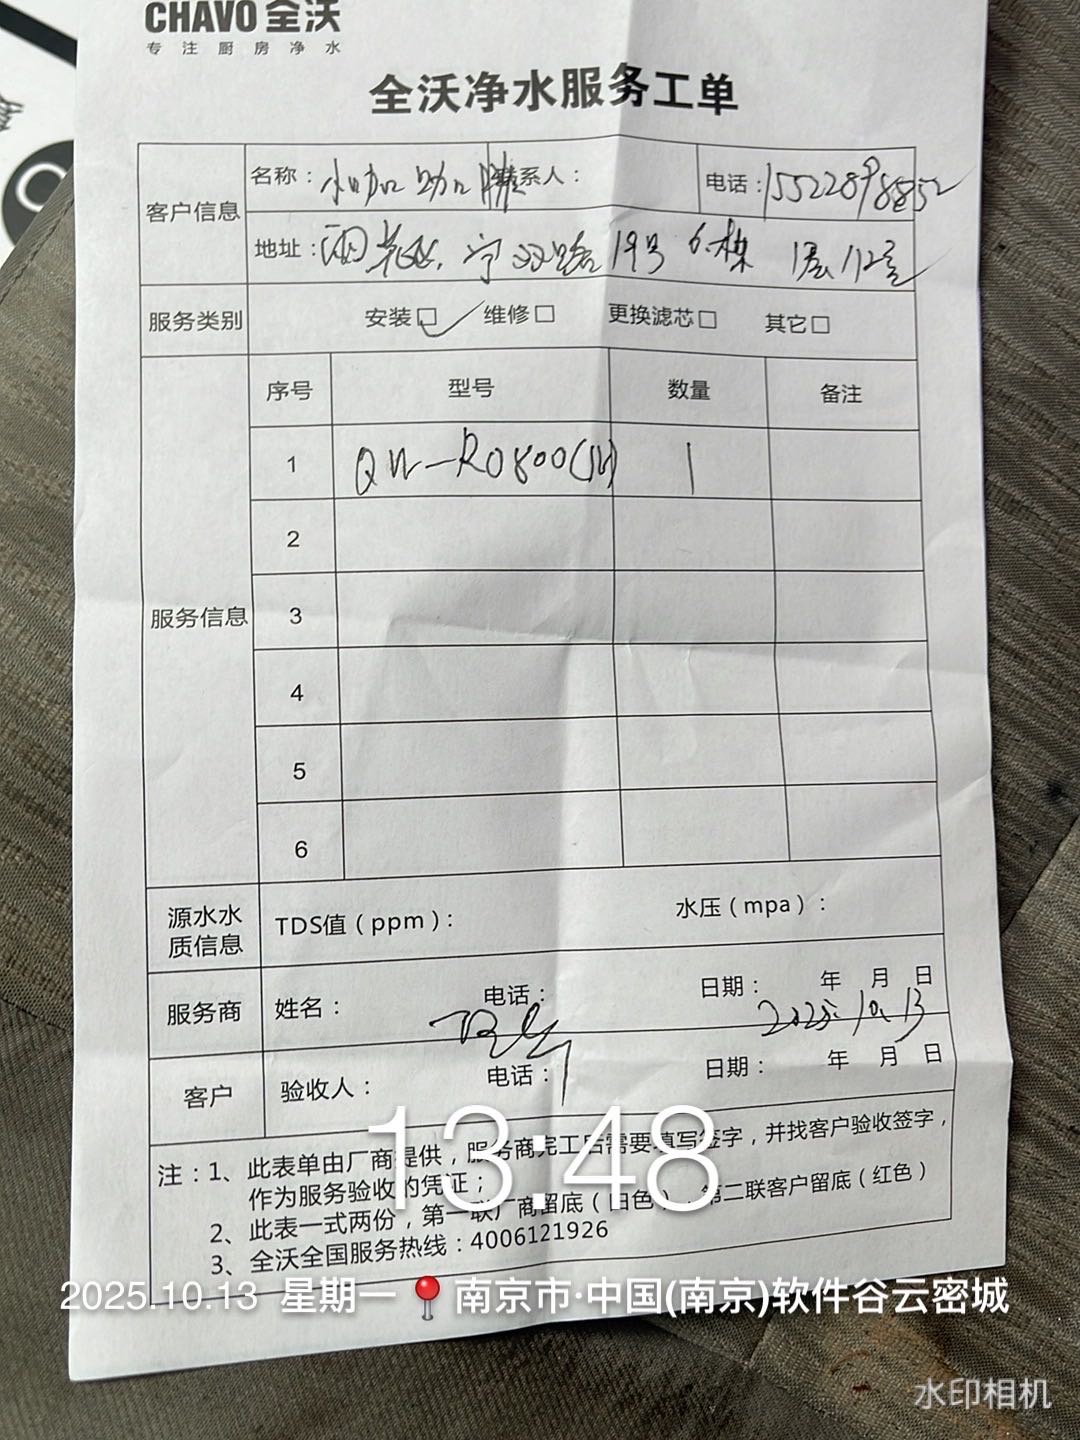 CHAVO 全沃
专 注 厨 房 净 水
全沃净水服务工单
客户信息
名称： 联系人： 电话：15522898852
地址：雨花区 宁双路19号6栋 1层112室
服务类别 安装☑ 维修□ 更换滤芯□ 其它□
服务信息
序号 型号 数量 备注
1 QW-RO800 1
2
3
4
5
6
源水水质信息 TDS值（ppm）： 水压（mpa）：
服务商 姓名： 电话： 日期： 年 月 日
2025.10.13
客户 验收人： 电话： 日期： 年 月 日
注：1、此表单由厂商提供，服务商完工后需要填写签字，并找客户验收签字，
作为服务验收的凭证；
2、此表一式两份，第一联厂商留底（白色），第二联客户留底（红色）
3、全沃全国服务热线：4006121926
13:48
2025.10.13 星期一 南京市·中国(南京)软件谷云密城
水印相机